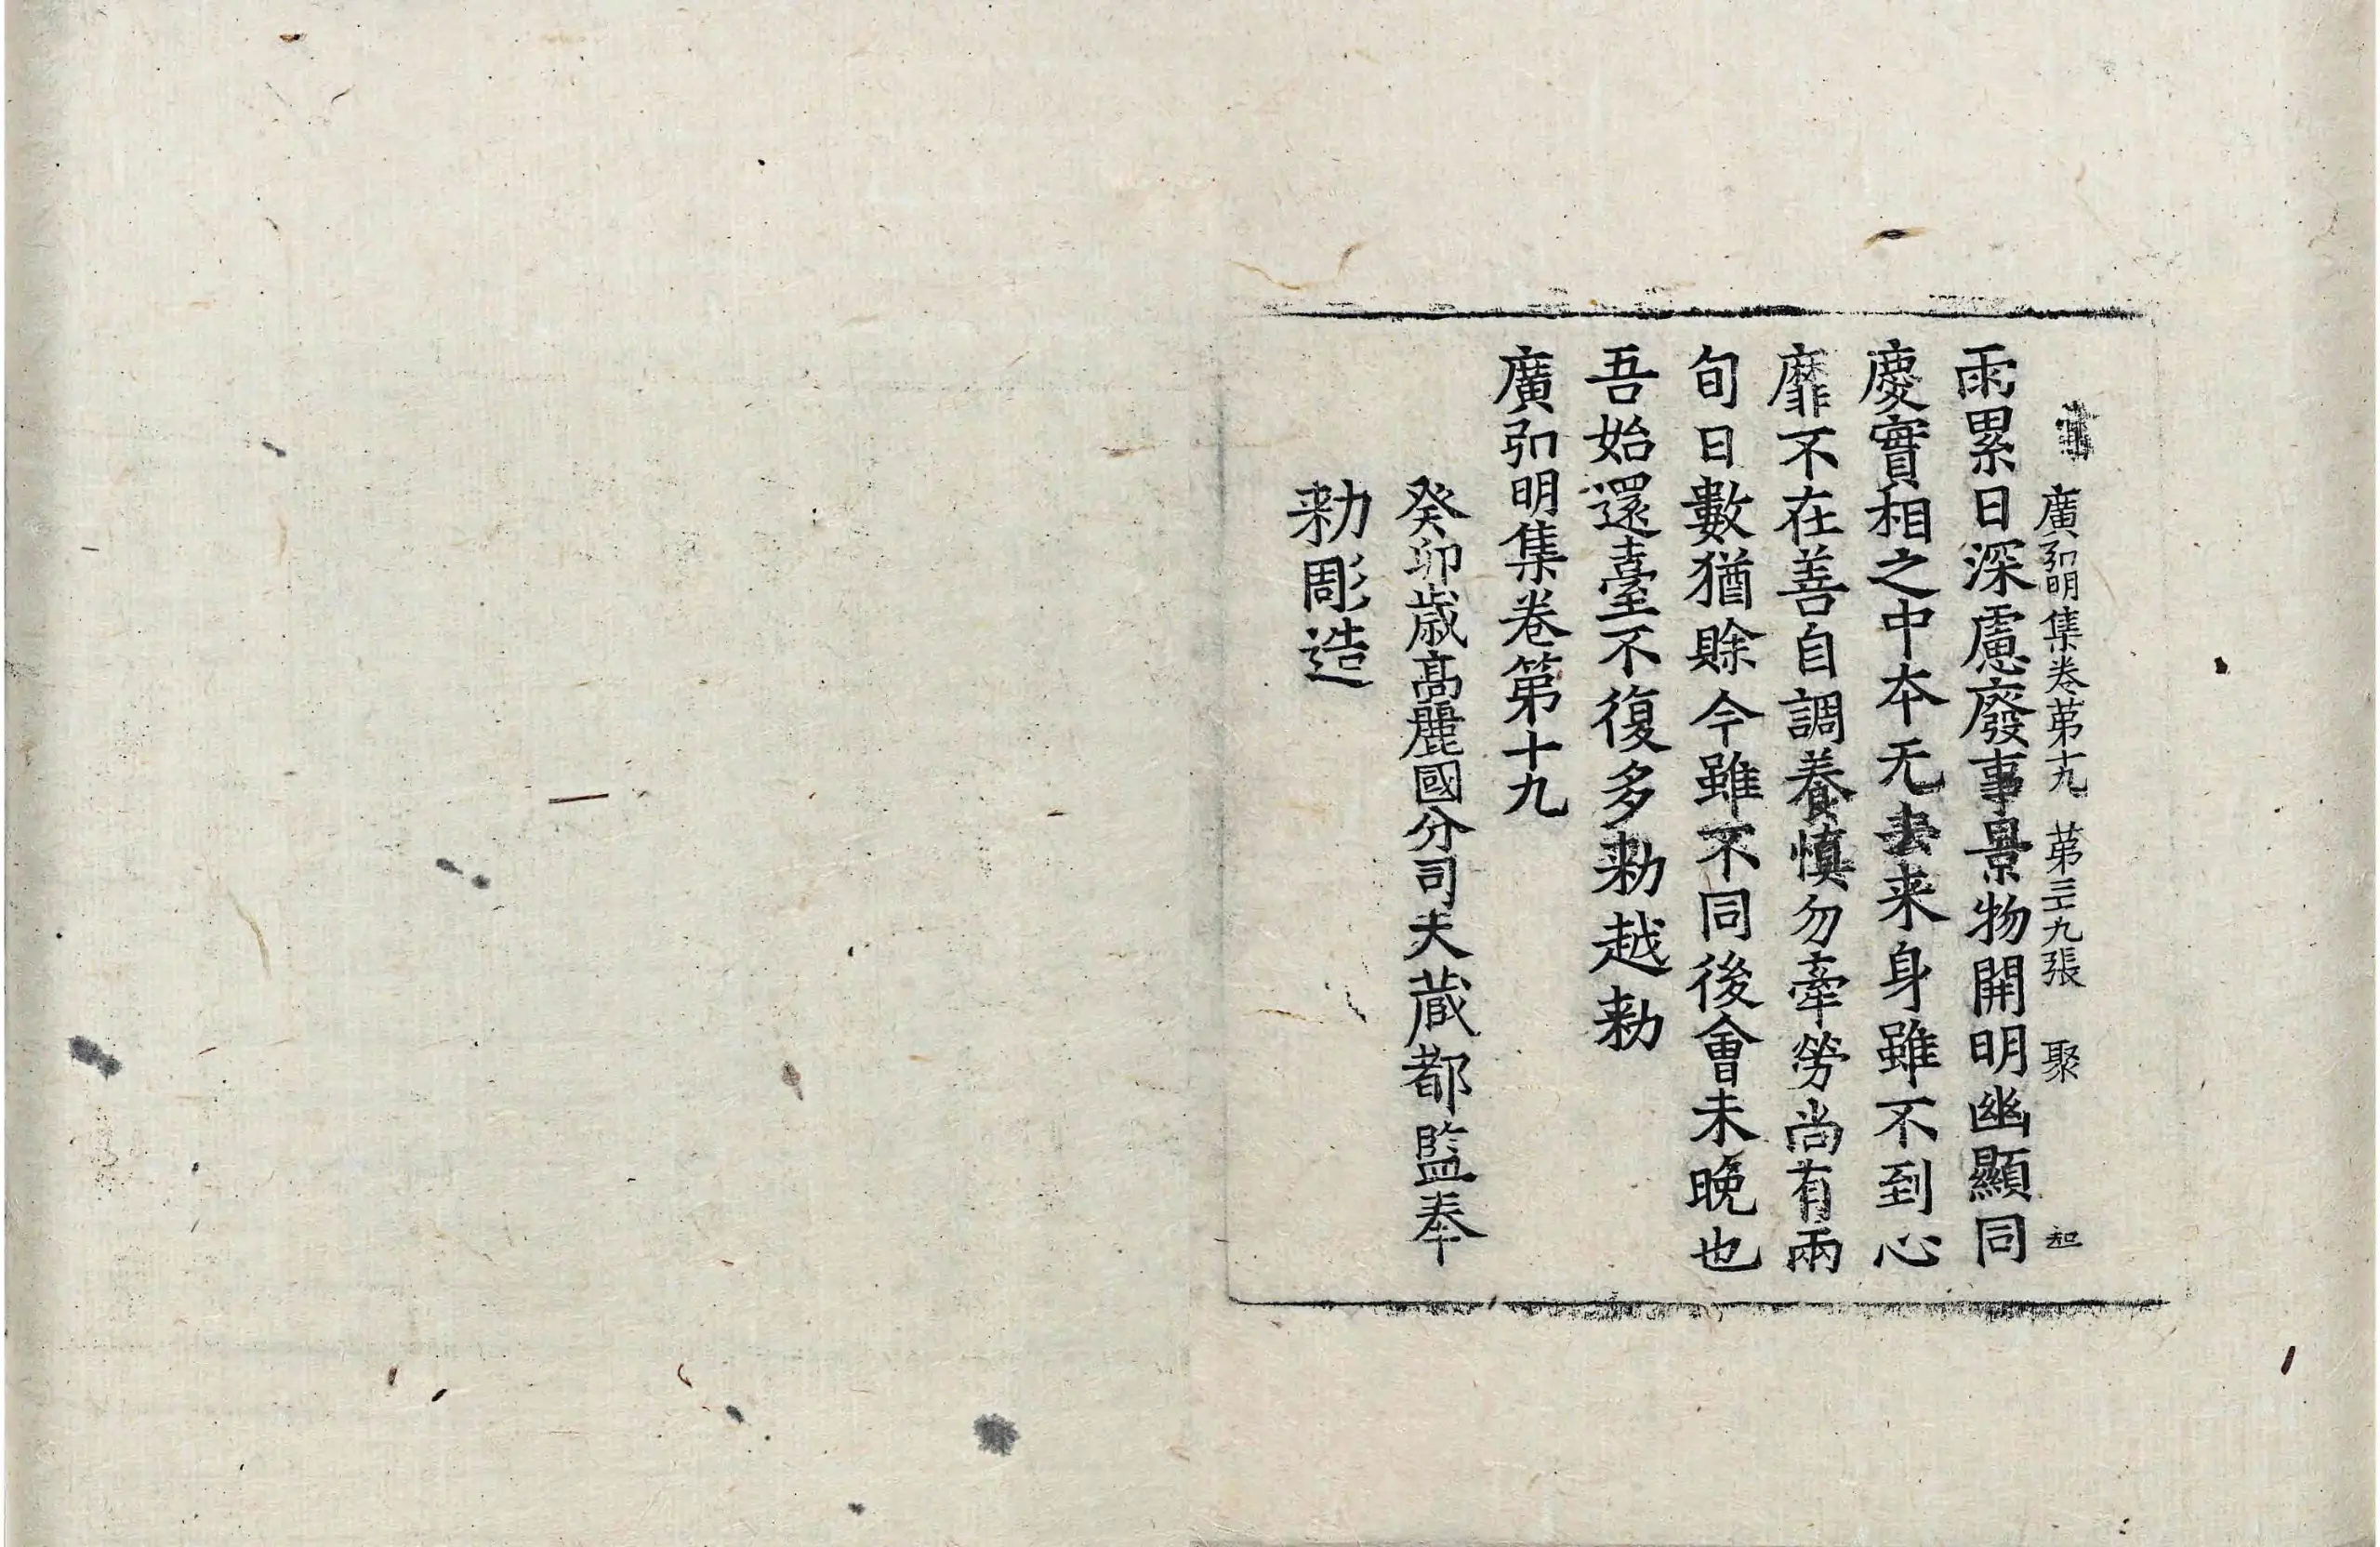 廣弘明集卷第十九 第三十九張 聚
雨累日深慮廢事景物開明幽顯同
慶實相之中本无去来身雖不到心
靡不在善自調養慎勿牽勞尚有兩
旬日數猶賖今雖不同後會未晚也
吾始還臺不復多勑越勑
廣弘明集卷第十九
癸卯歳高麗國分司大蔵都監奉
勑彫造